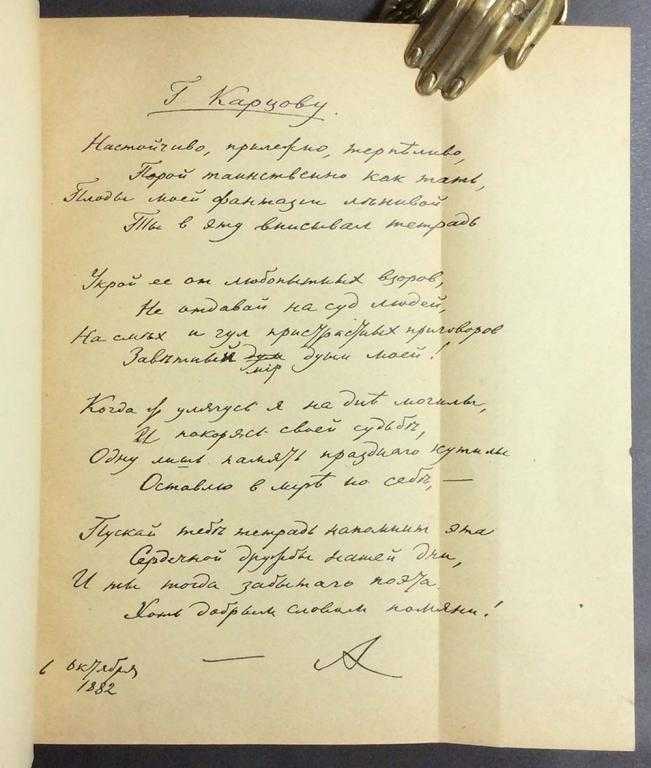 Г. Карцову.
Настойчиво, прилежно, терпѣливо,
Порой таинственно как тать,
Плоды моей фантазіи лѣнивой
Ты в эту вписывал тетрадь
Укрой ее от любопытных взоров,
Не отдавай на суд людей,
На смѣх и гул пристрастных приговоров
Завѣтный
мір души моей!
Когда улягусь я на днѣ могилы,
И покорясь своей судьбѣ,
Одну лишь память празднаго кутилы
Оставлю в мірѣ по себѣ, —
Пускай тебѣ тетрадь напомнит эта
Сердечной дружбы нашей дни,
И ты тогда забытаго поэта
Хоть добрым словом помяни!
6 октября
1882
— А